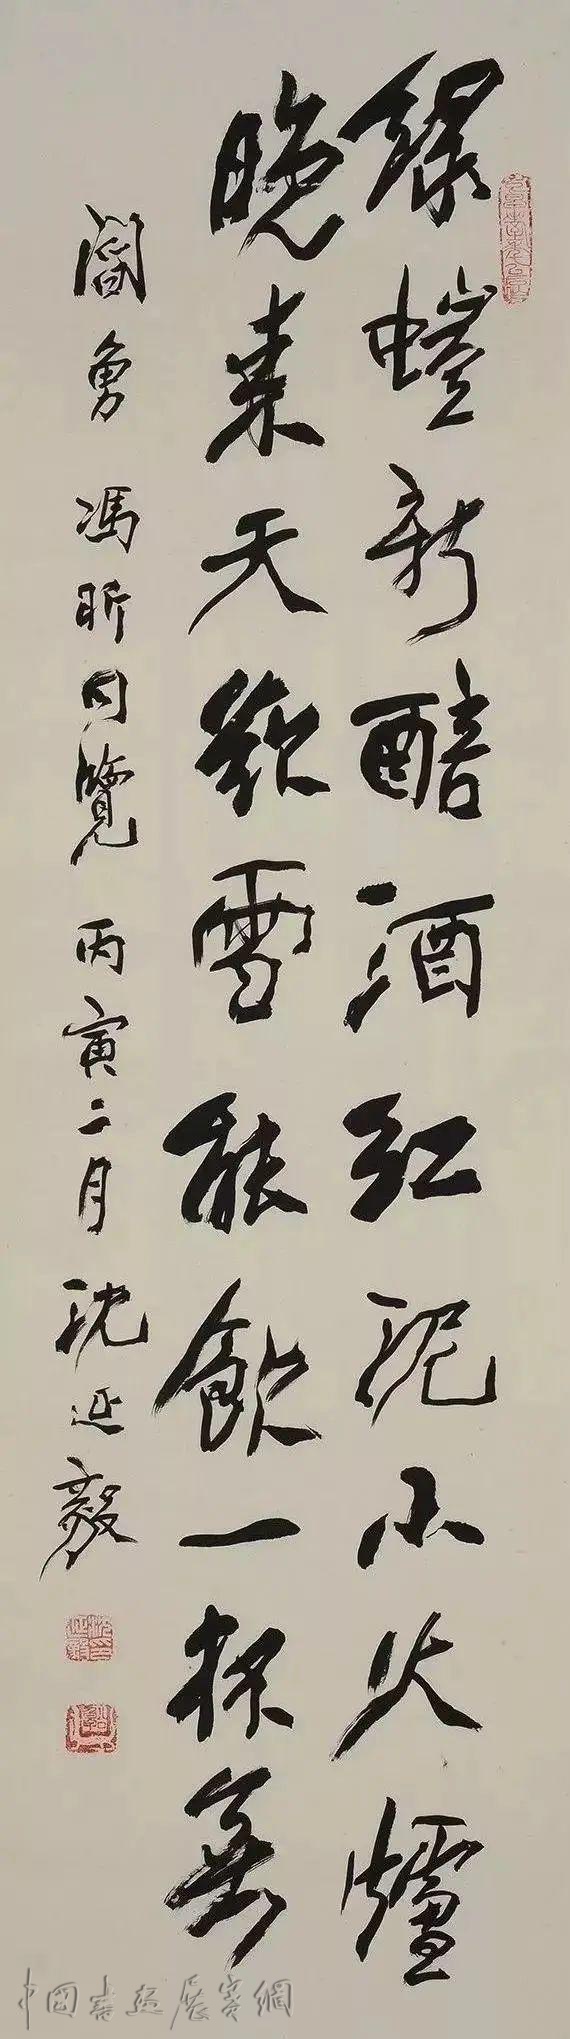 綠螘新醅酒紅泥小火爐
晚來天欲雪能飲一杯無
閻勇馮昕同覽丙寅二月沈延毅
中國書法展賽網